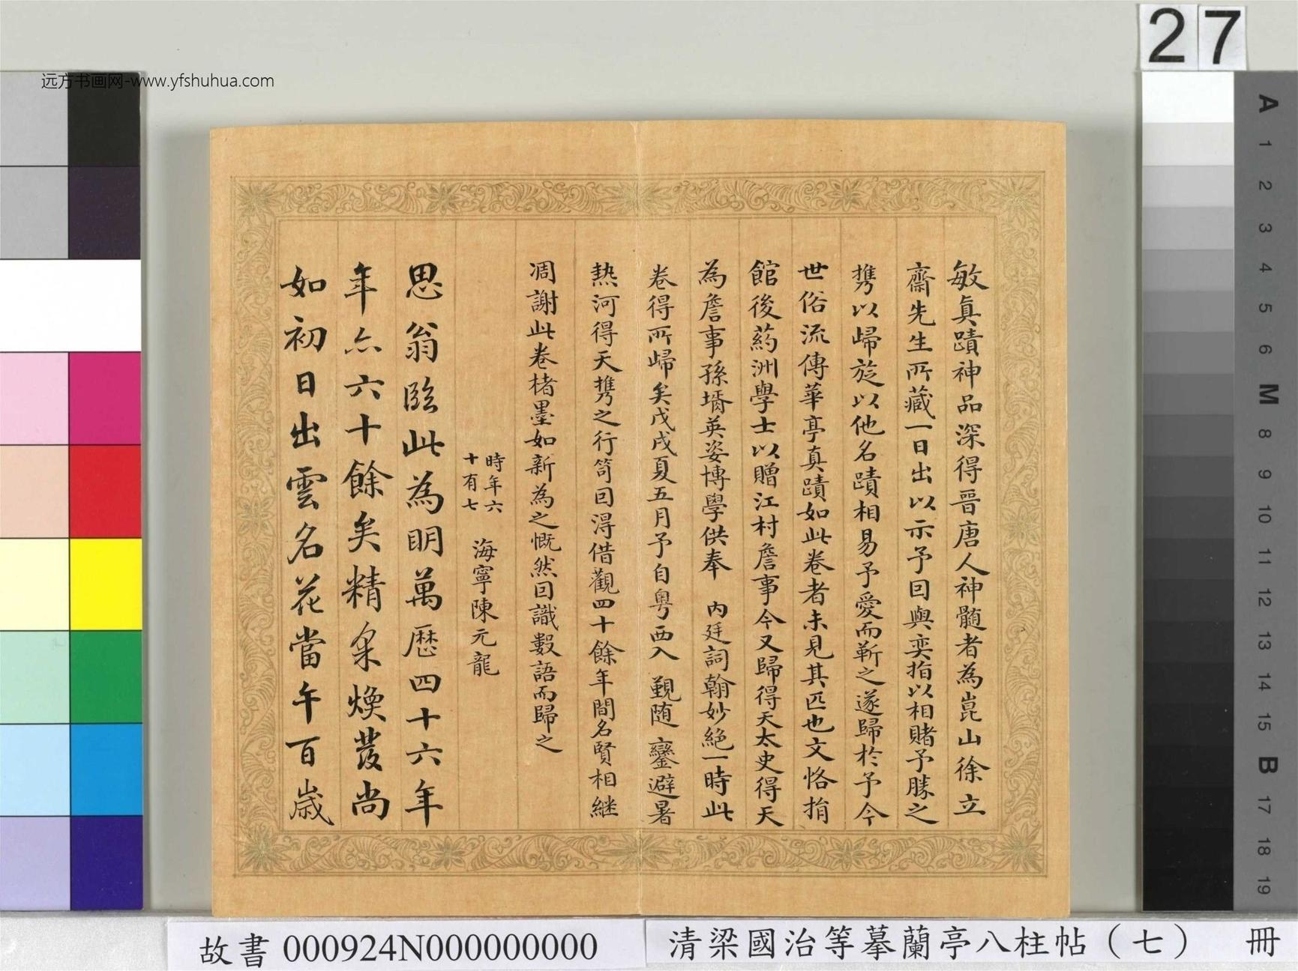 远方书画网-www.yfshuhua.com
27
敏真蹟神品深得晉唐人神髓者為崑山徐立
齋先生所藏一日出以示予因與奕指以相賭予勝之
携以歸旋以他名蹟相易予愛而靳之遂歸於予今
世俗流傳華亭真蹟如此卷者未見其匹也文恪捐
館後葯洲學士以贈江村詹事今又歸得天太史得天
為詹事孫壻英姿博學供奉 內廷詞翰妙絕一時此
卷得所歸矣戊戌夏五月予自粵西入 覲随 鑾避暑
熱河得天携之行笥因得借觀四十餘年間名賢相継
凋謝此卷楮墨如新為之慨然因識數語而歸之
時年六十有七 海寧陳元龍
思翁臨此為明萬歷四十六年
年六六十餘矣精采煥發尚
如初日出雲名花當午百歲
A
1
2
3
4
5
6
M
8
9
10
11
12
13
14
15
B
17
18
19
故書 000924N000000000
清梁國治等摹蘭亭八柱帖（七） 冊